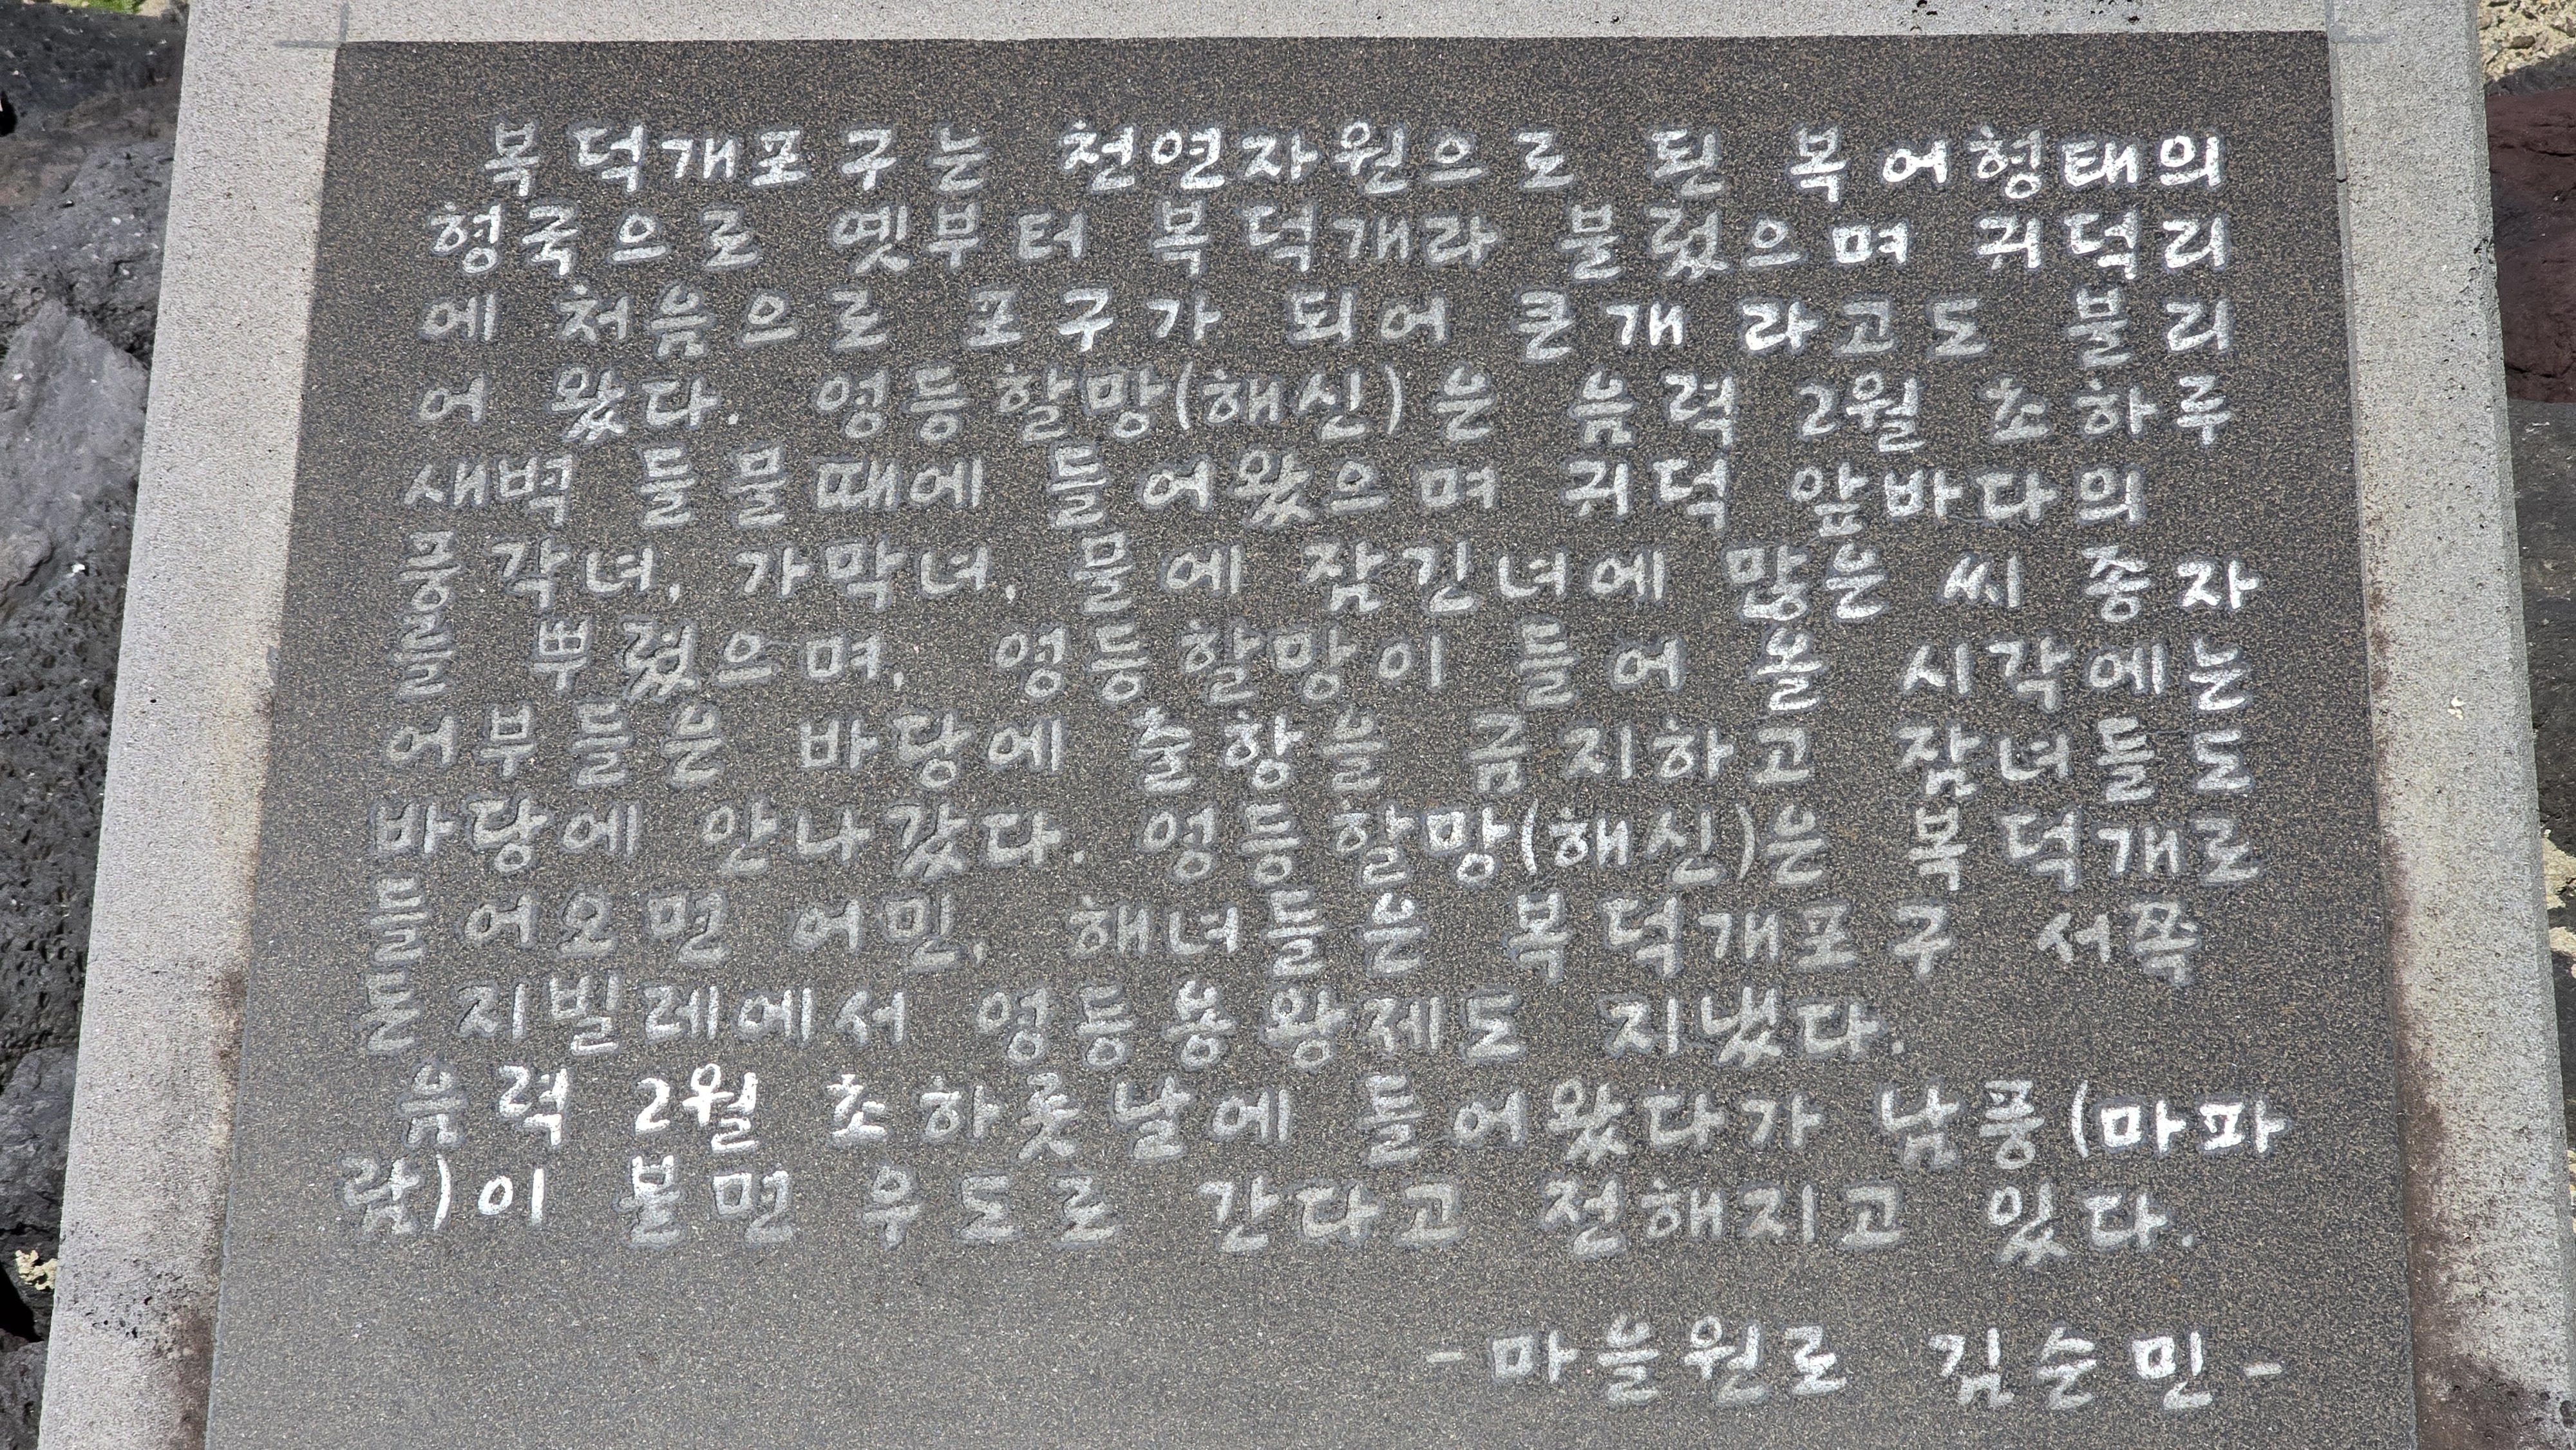 복덕개포구는 천연자원으로 된 복어형태의
형국으로 옛부터 복덕개라 불렀으며 귀덕리
에 처음으로 포구가 되어 큰개 라고도 불리
어 왔다. 영등할망(해신)은 음력 2월 초하루
새벽 들물때에 들어왔으며 귀덕 앞바다의
궁각녀, 가막녀, 물에 잠긴녀에 많은 씨 종자
를 뿌렸으며, 영등할망이 들어 올 시각에는
어부들은 바당에 출항을 금지하고 잠녀들도
바당에 안나갔다. 영등할망(해신)은 복덕개로
들어오면 어민, 해녀들은 복덕개포구 서쪽
돈지빌레에서 영등용왕제도 지냈다.
음력 2월 초하룻날에 들어왔다가 남풍(마파
람)이 불면 우도로 간다고 전해지고 있다.
-마을원로 김순민-